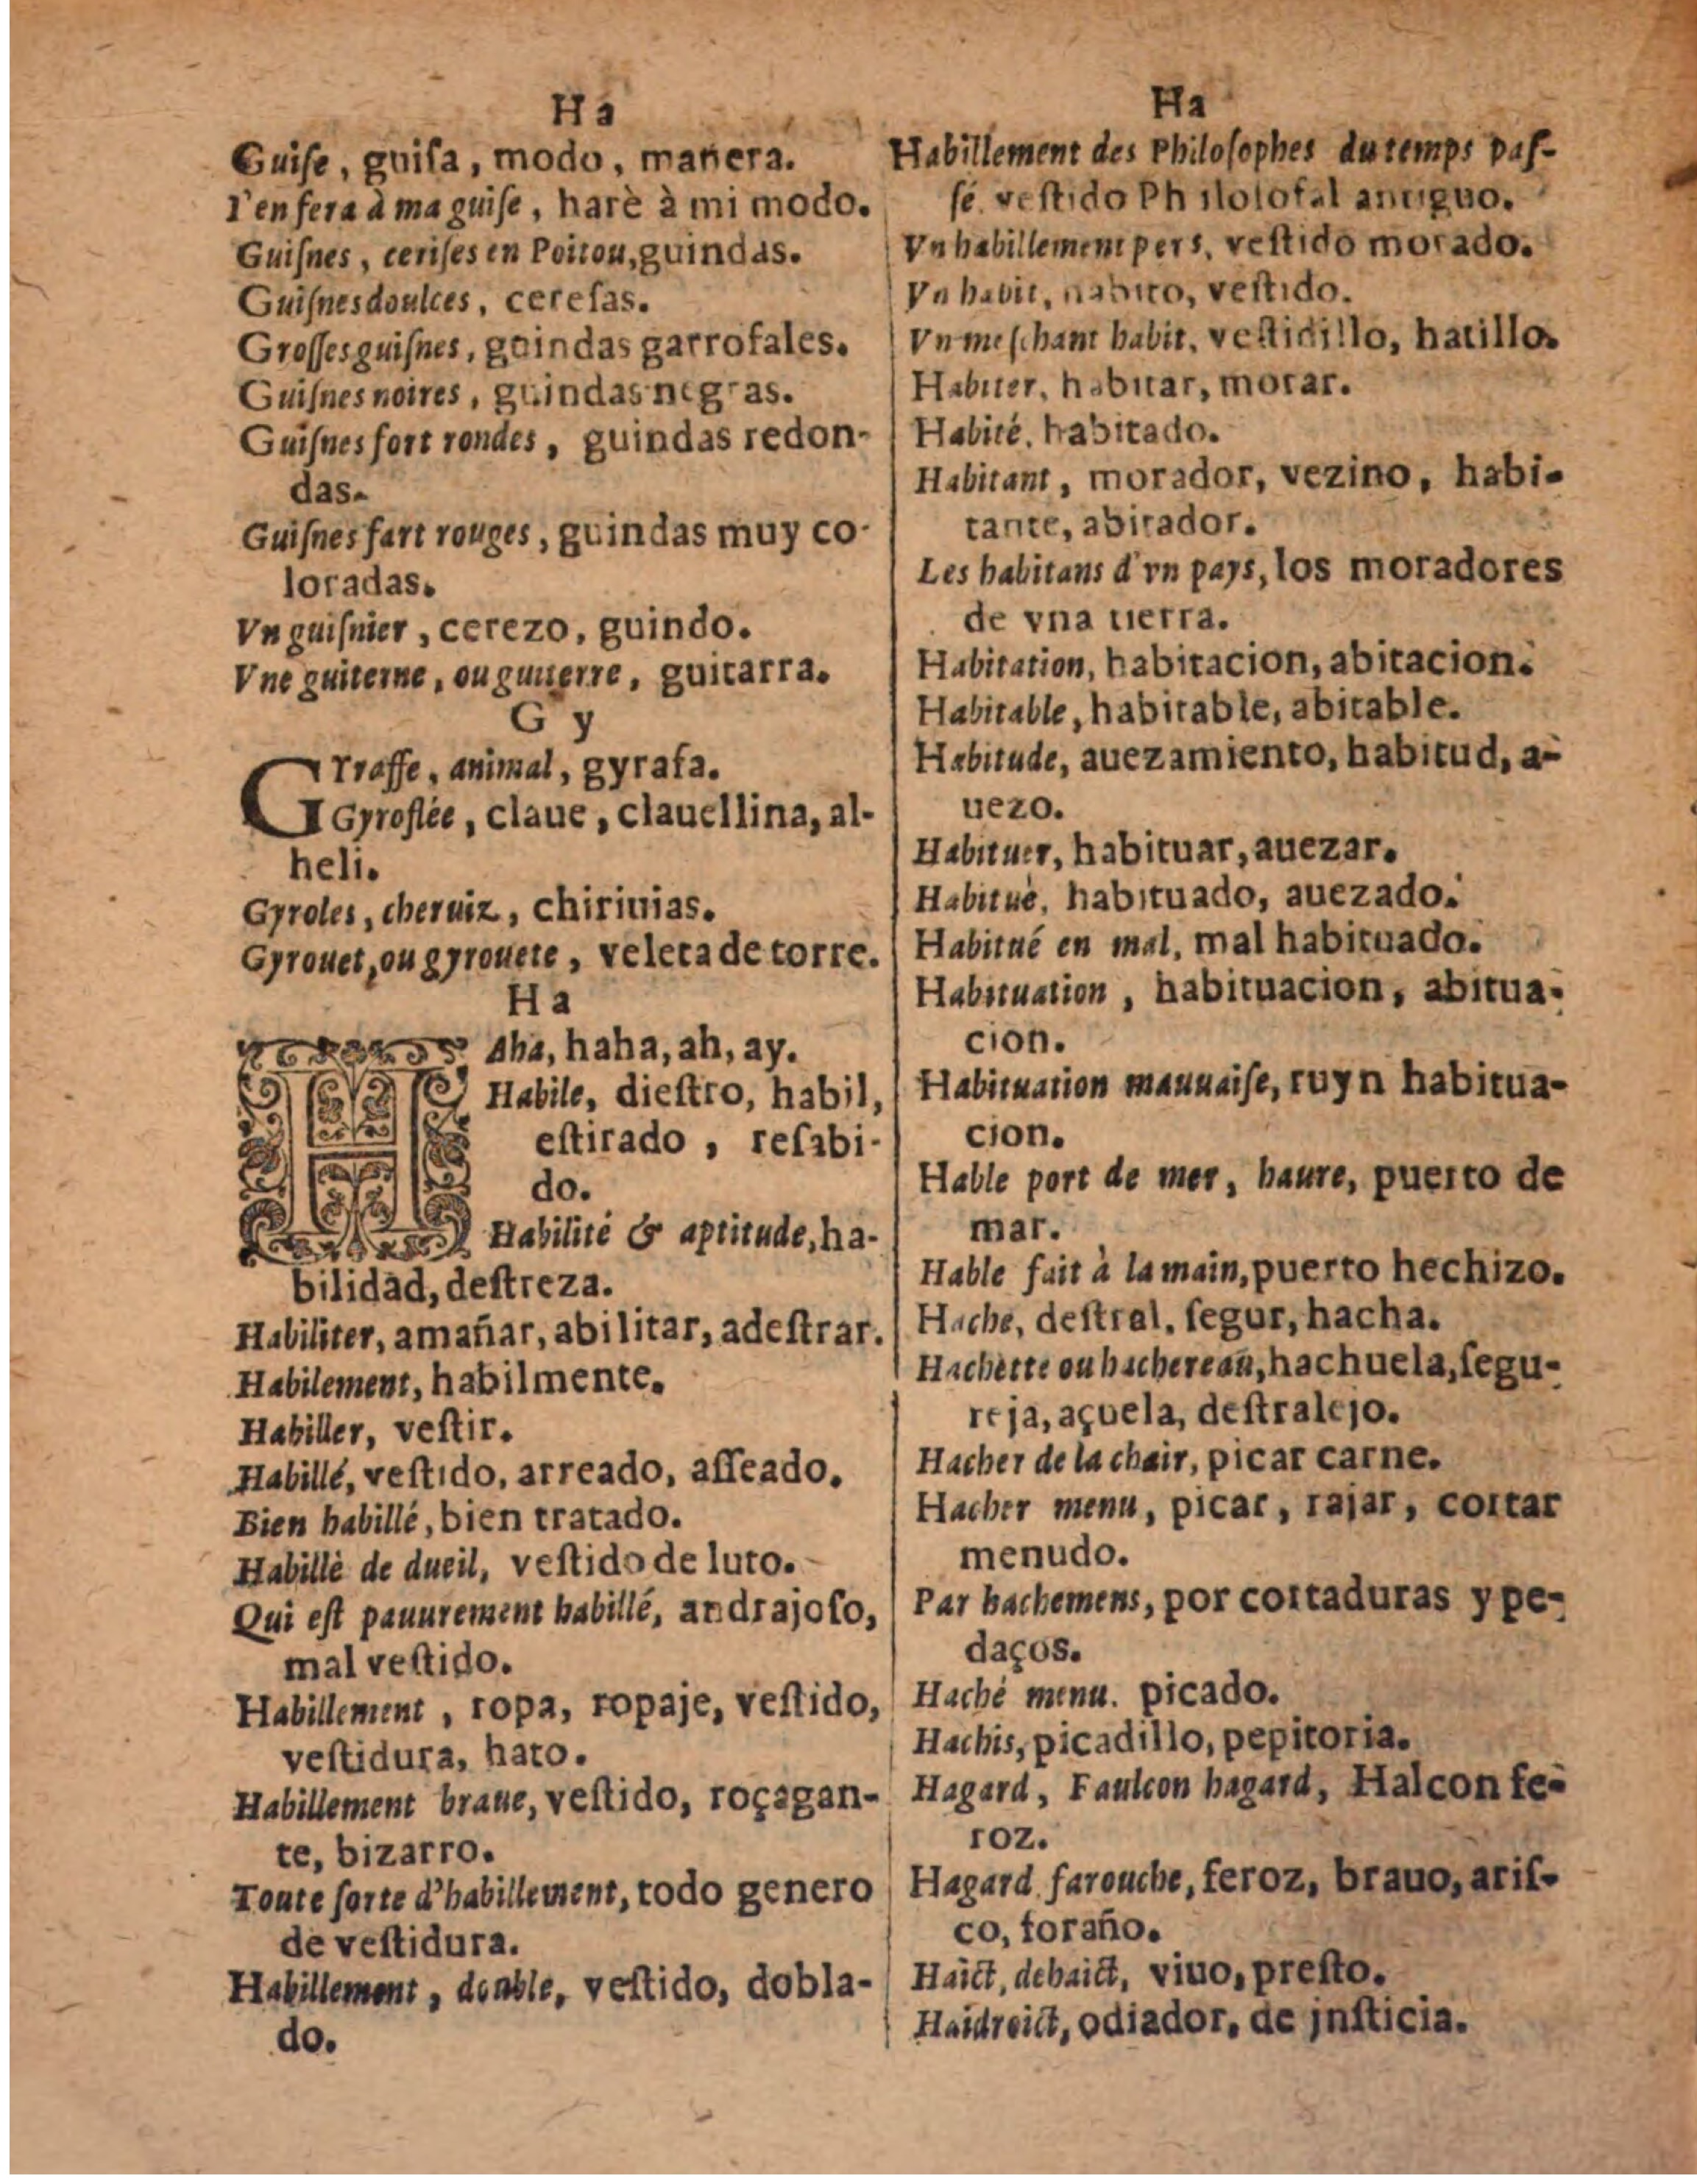 Ha
Guiſe, guiſa, modo, manera.
I'en fera à ma guiſe, harè à mi modo.
Guiſnes, ceriſes en Poitou, guindas.
Guiſnes doulces, cereſas.
Groſſes guiſnes, guindas garrofales.
Guiſnes noires, guindas negras.
Guiſnes fort rondes, guindas redon-
das.
Guiſnes fart rouges, guindas muy co-
loradas.
Vn guiſnier, cerezo, guindo.
Vne guiterne, ou guiterre, guitarra.
Gy
GYraffe, animal, gyrafa.
Gyroflée, claue, clauellina, al-
heli.
Gyroles, cheruiz, chiriuias.
Gyrouet, ou gyrouete, veleta de torre.
Ha
HAha, haha, ah, ay.
Habile, dieſtro, habil,
eſtirado, reſabi-
do.
Habilité & aptitude, ha-
bilidad, deſtreza.
Habiliter, amañar, abilitar, adeſtrar.
Habilement, habilmente.
Habiller, veſtir.
Habillé, veſtido, arreado, aſſeado.
Bien habillé, bien tratado.
Habillè de dueil, veſtido de luto.
Qui eſt pauurement habillé, andrajoſo,
mal veſtido.
Habillement, ropa, ropaje, veſtido,
veſtidura, hato.
Habillement braue, veſtido, roçagan-
te, bizarro.
Toute ſorte d'habillement, todo genero
de veſtidura.
Habillement, double, veſtido, dobla-
do.
Ha
Habillement des Philoſophes du temps paſ-
ſé. veſtido Philoſofal antiguo.
Vn habillement pers, veſtido morado.
Vn habit, habito, veſtido.
Vn meſchant habit, veſtidillo, hatillo.
Habiter, habitar, morar.
Habité, habitado.
Habitant, morador, vezino, habi-
tante, abitador.
Les habitans d'vn pays, los moradores
de vna tierra.
Habitation, habitacion, abitacion.
Habitable, habitable, abitable.
Habitude, auezamiento, habitud, a-
uezo.
Habituer, habituar, auezar.
Habituè, habituado, auezado.
Habitué en mal, mal habituado.
Habituation, habituacion, abitua-
cion.
Habituation mauuaiſe, ruyn habitua-
cion.
Hable port de mer, haure, puerto de
mar.
Hable fait à la main, puerto hechizo.
Hache, deſtral, ſegur, hacha.
Hachette ou hachereau, hachuela, ſegu-
reja, açuela, deſtralejo.
Hacher de la chair, picar carne.
Hacher menu, picar, rajar, cortar
menudo.
Par hachemens, por cortaduras y pe-
daços.
Haché menu. picado.
Hachis, picadillo, pepitoria.
Hagard, Faulcon hagard, Halcon fe-
roz.
Hagard farouche, feroz, brauo, ariſ-
co, foraño.
Haict, dehaict, viuo, preſto.
Haidroict, odiador, de jnſticia.